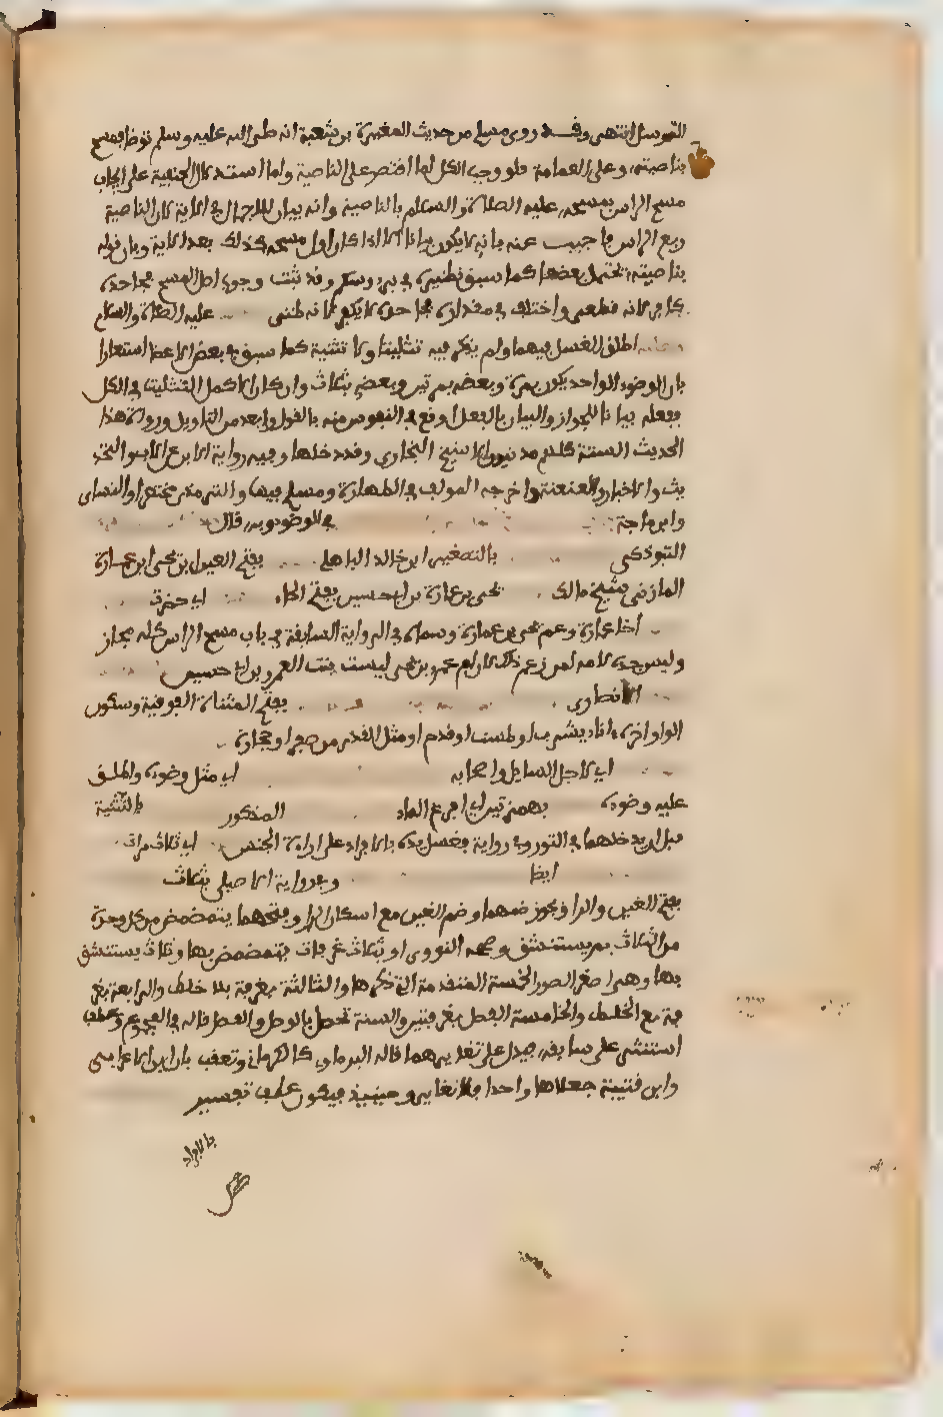 التوسل انتهى وقد روى مسلم من حديث المغيرة بن شعبة انه صلى الله عليه وسلم توضأ فمسح
بناصيته وعلى العمامة فلو وجب الكل لما اقتصر على الناصية واما استدلال الحنفية على ايجاب
مسح الراس بمسحه عليه الصلاة والسلام بالناصية وانه بيان للاجمال في الاية لان الناصية
ربع الراس فاجيب عنه بانه لا يكون بيانا الا اذا كان اول مسحه كذلك بعد الاية وبان قوله
بناصيته يحتمل بعضها كما سبق نظيره في برءوسكم وقد ثبت وجوب اصل المسح فجاحده
كافر لانه قطعي واختلف في مقداره فجاحده لا يكفر لانه ظني عليه الصلاة والسلام
اطلق الغسل فيهما ولم يذكر فيه تثليثا ولا تثنية كما سبق في بعض الاعضا اشعارا
بان الوضوء الواحد يكون بمرة وبعضه بمرتين وبعضه بثلاث وان كان الاكمل التثليث في الكل
ففعله بيانا للجواز والبيان بالفعل اوقع في النفوس منه بالقول وابعد من التاويل ورواة هذا
الحديث الستة كلهم مدنيون الا شيخ البخاري وقد دخلها وفيه رواية الابن عن الاب والتحد
يث والاخبار والعنعنة واخرجه المولف في الطهارة ومسلم فيها والترمذي مختصرا والنساى
وابن ماجة في الوضوء وبه قال
التبوذكي بالتصغير ابن خالد الباهلي بفتح العين ابن يحيى ابن عمارة
المازني شيخ مالك يحيى بن عمارة بن ابي حسين بفتح الحاء اي حضرت
اخا عمارة وعم يحيى بن عمارة وسماه في الرواية السابقة في باب مسح الراس كله مجاز
وليس جده لامه لمن زعم ذلك لان ام عمرو بن يحيى ليست بنت العمرو بن ابي حسين
الانصاري بفتح المثناة الفوقية وسكون
الواو اخره اناء يشرب او طست او قدح او مثل القدر من صفر او حجارة
اي لاجل السايل واصحابه اي مثل وضوءه واطلق
عليه وضوءه بهمزتين اي افرغ الماء المذكور بالتثنية
قبل ان يدخلهما في التور وفي رواية فغسل يده بالافراد على ارادة الجنس اي ثلاث مرات
ايضا وفي رواية الاصيلي بثلاث
بفتح الغين والرا ويجوز ضمهما وضم الغين مع اسكان الرا وفتحهما يتمضمض من كل وحدة
من الثلاث ثم يستنشق وصححه النووي او بثلاث غرفات يتمضمض بها وثلاث يستنشق
بها وهذا احد الصور الخمسة المتقدمة التي ذكرها والثالثة بغرفة بلا خلط والرابعة بغر
فة مع الخلط والخامسة الفصل بغرفتين والسنة تحصل بالوصل والفصل قاله في المجموع وعطف
استنثر على سابقه فيدل على تغايرهما قاله البرماوي كالكرماني وتعقب بان ابن الاعرابي
وابن قتيبة جعلاها واحدا فلا تغاير وحينئذ فيكون عطف تفسير
بالافراد